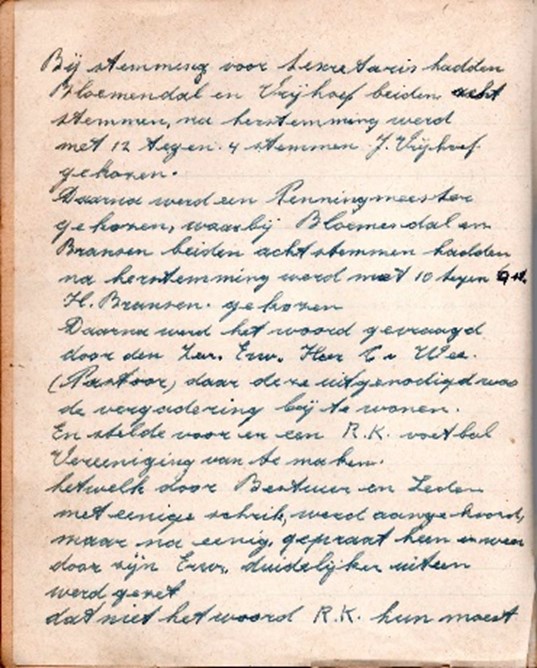 Bij stemming voor sekretaris hadden
Bloemendal en Vrijhoef beiden acht
stemmen, na herstemming werd
met 12 tegen 4 stemmen J. Vrijhoef
gekozen.
Daarna werd een Penningmeester
gekozen, waarbij Bloemendal en
Bransen beiden acht stemmen hadden
na herstemming werd met 10 tegen
H. Bransen. gekozen
Daarna werd het woord gevraagd
door den Zeer. Eerw. Heer v Wee.
(Pastoor) daar deze uitgenodigd was
de vergadering bij te wonen.
En stelde voor er een R.K. voetbal
Vereeniging van te maken.
hetwelk door Bestuur en Leden
met eenige schrik, werd aangehoord,
maar na eenig, gepraat heen en weer
door zijn Eerw. duidelijker uiteen
werd gezet
dat niet het woord R.K. hun moest